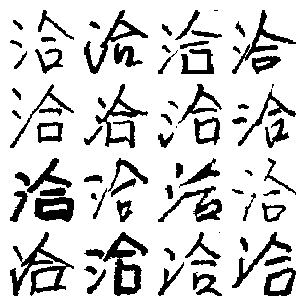 洽洽洽洽
洽洽洽洽
洽洽洽洽
洽洽洽洽